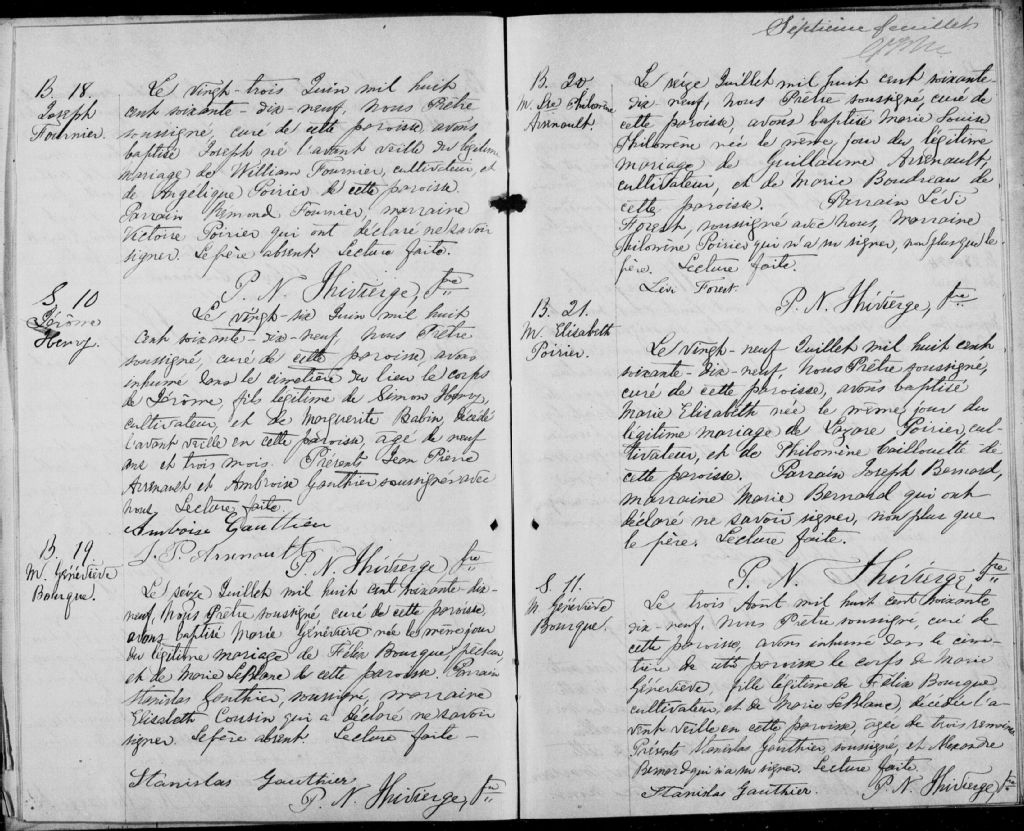 B. 18
Joseph
Fournier.
Le vingt-trois Juin mil huit
cent soixante-dix-neuf, Nous Prêtre
soussigné, curé de cette paroisse, avons
baptisé Joseph né l'avant veille du légitime
mariage de William Fournier, cultivateur, et
de Angélique Poirier de cette paroisse.
Parrain Remond Fournier, marraine
Victoire Poirier qui ont déclaré ne savoir
signer. Le père absent. Lecture faite.
P. N. Thivierge, Ptre
S. 10
Jérôme
Henry.
Le vingt-six Juin mil huit
cent soixante-dix-neuf, Nous Prêtre
soussigné, curé de cette paroisse, avons
inhumé dans le cimetière du lieu le corps
de Jérôme, fils légitime de Simon Henry,
cultivateur, et de Marguerite Babin, décédé
l'avant veille en cette paroisse, agé de neuf
ans et trois mois. Présents Jean Pierre
Arsenault et Ambroise Gauthier soussignés avec
nous. Lecture faite.
Amboise Gauthier
J. P. Arsenault
P. N. Thivierge Ptre
B. 19.
M. Généviève
Bourque.
Le seize Juillet mil huit cent soixante-dix-
neuf, Nous Prêtre soussigné, curé de cette paroisse,
avons baptisé Marie Généviève née le même jour
du légitime mariage de Félix Bourque, pêcheur
et de Marie LeBlanc de cette paroisse. Parrain
Stanislas Gauthier, soussigné, marraine
Elizabeth Cousin qui a déclaré ne savoir
signer. Le père absent. Lecture faite-
Stanislas Gauthier
P. N. Thivierge, Ptre
Septième feuillet
B. 20
M. Lse Philomène
Arsenault.
Le seize Juillet mil huit cent soixante-
dix-neuf, Nous Prêtre soussigné, curé de
cette paroisse, avons baptisé Marie Louise
Philomène née le même jour du légitime
mariage de Guillaume Arsenault,
cultivateur, et de Marie Boudreau de
cette paroisse. Parrain Lévi
Forest, soussigné avec nous, marraine
Philomène Poirier qui n'a su signer, non plus que le
père. Lecture faite.
Lévi Forest.
P. N. Thivierge, Ptre
B. 21.
M. Elisabeth
Poirier.
Le vingt-neuf Juillet mil huit cent
soixante-dix-neuf, Nous Prêtre soussigné,
curé de cette paroisse, avons baptisé
Marie Elisabeth née le même jour du
légitime mariage de Lazare Poirier, cul-
tivateur, et de Philomène Caillouette de
cette paroisse. Parrain Joseph Bernard,
marraine Marie Bernard qui ont
déclaré ne savoir signer, non plus que
le père. Lecture faite.
P. N. Thivierge, Ptre
S. 11.
M. Généviève
Bourque.
Le trois Août mil huit cent soixante
dix-neuf, Nous Prêtre soussigné, curé de
cette paroisse, avons inhumé dans le cime-
tière de cette paroisse le corps de Marie
Généviève, fille légitime de Félix Bourque,
cultivateur, et de Marie LeBlanc, décédée l'a-
vant veille en cette paroisse, agée de trois semaines
Présents Stanislas Gauthier, soussigné, et Alexandre
Bernard qui n'a su signer. Lecture faite.
Stanislas Gauthier.
P. N. Thivierge, Ptre